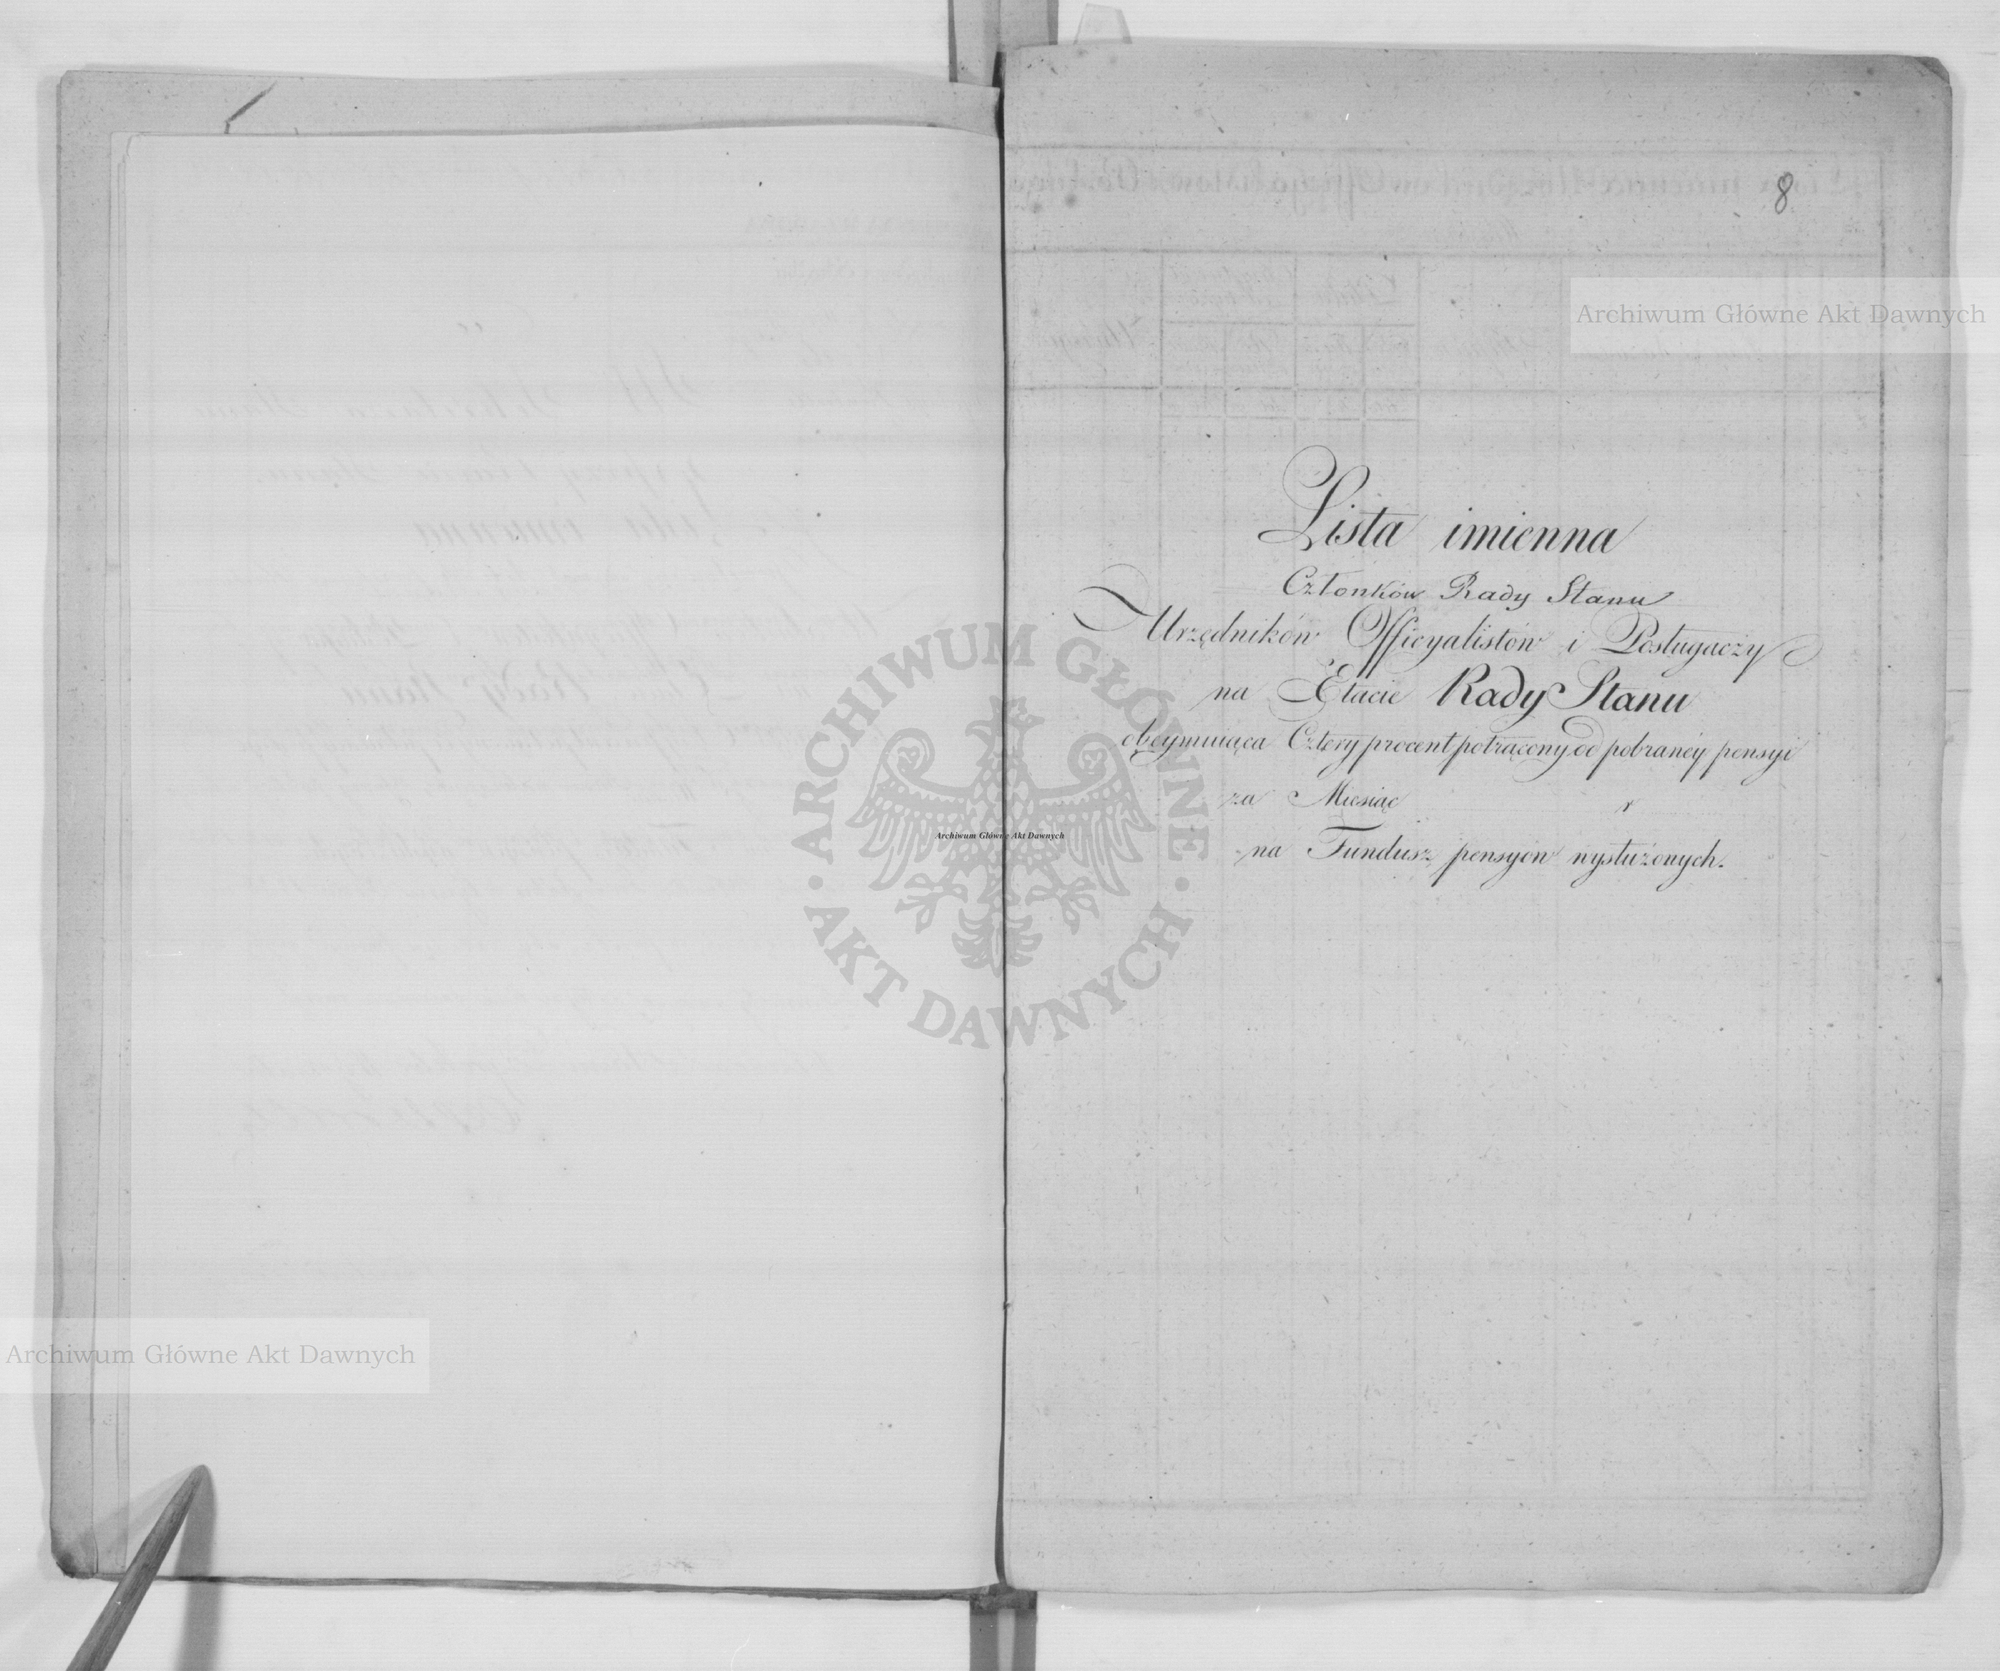 8
Archiwum Główne Akt Dawnych
Lista imienna
Członków Rady Stanu
Urzędników Officyalistów i Posługaczy
na Etacie Rady Stanu
obeymuiąca Cztery procent potrącony od pobraney pensyi
za Miesiąc r
na Fundusz pensyów wysłużonych.
ARCHIWUM GŁÓWNE AKT DAWNYCH
Archiwum Główne Akt Dawnych
Archiwum Główne Akt Dawnych